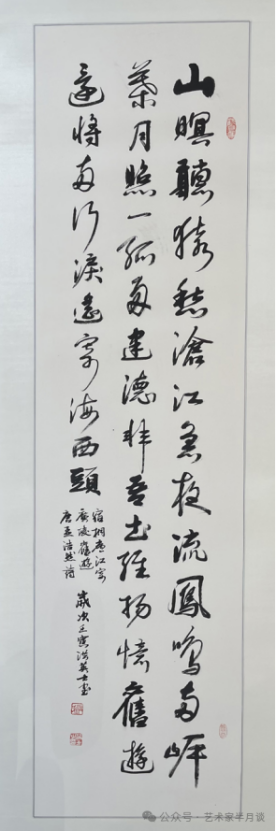 山暝聽猿愁滄江急夜流鳳鳴兩岸
葉月照一孤舟建德非吾土維揚憶舊遊
還將兩行淚遙寄海西頭
宿桐廬江寄
廣陵舊遊
唐孟浩然詩
歲次壬寅洪英士書
公众号 · 艺术家半月谈